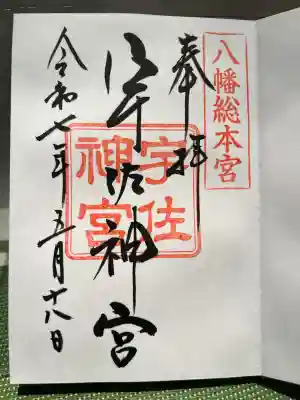 八幡総本宮
奉拝
宇佐神宮
宇佐
神宮
令和七年五月十八日